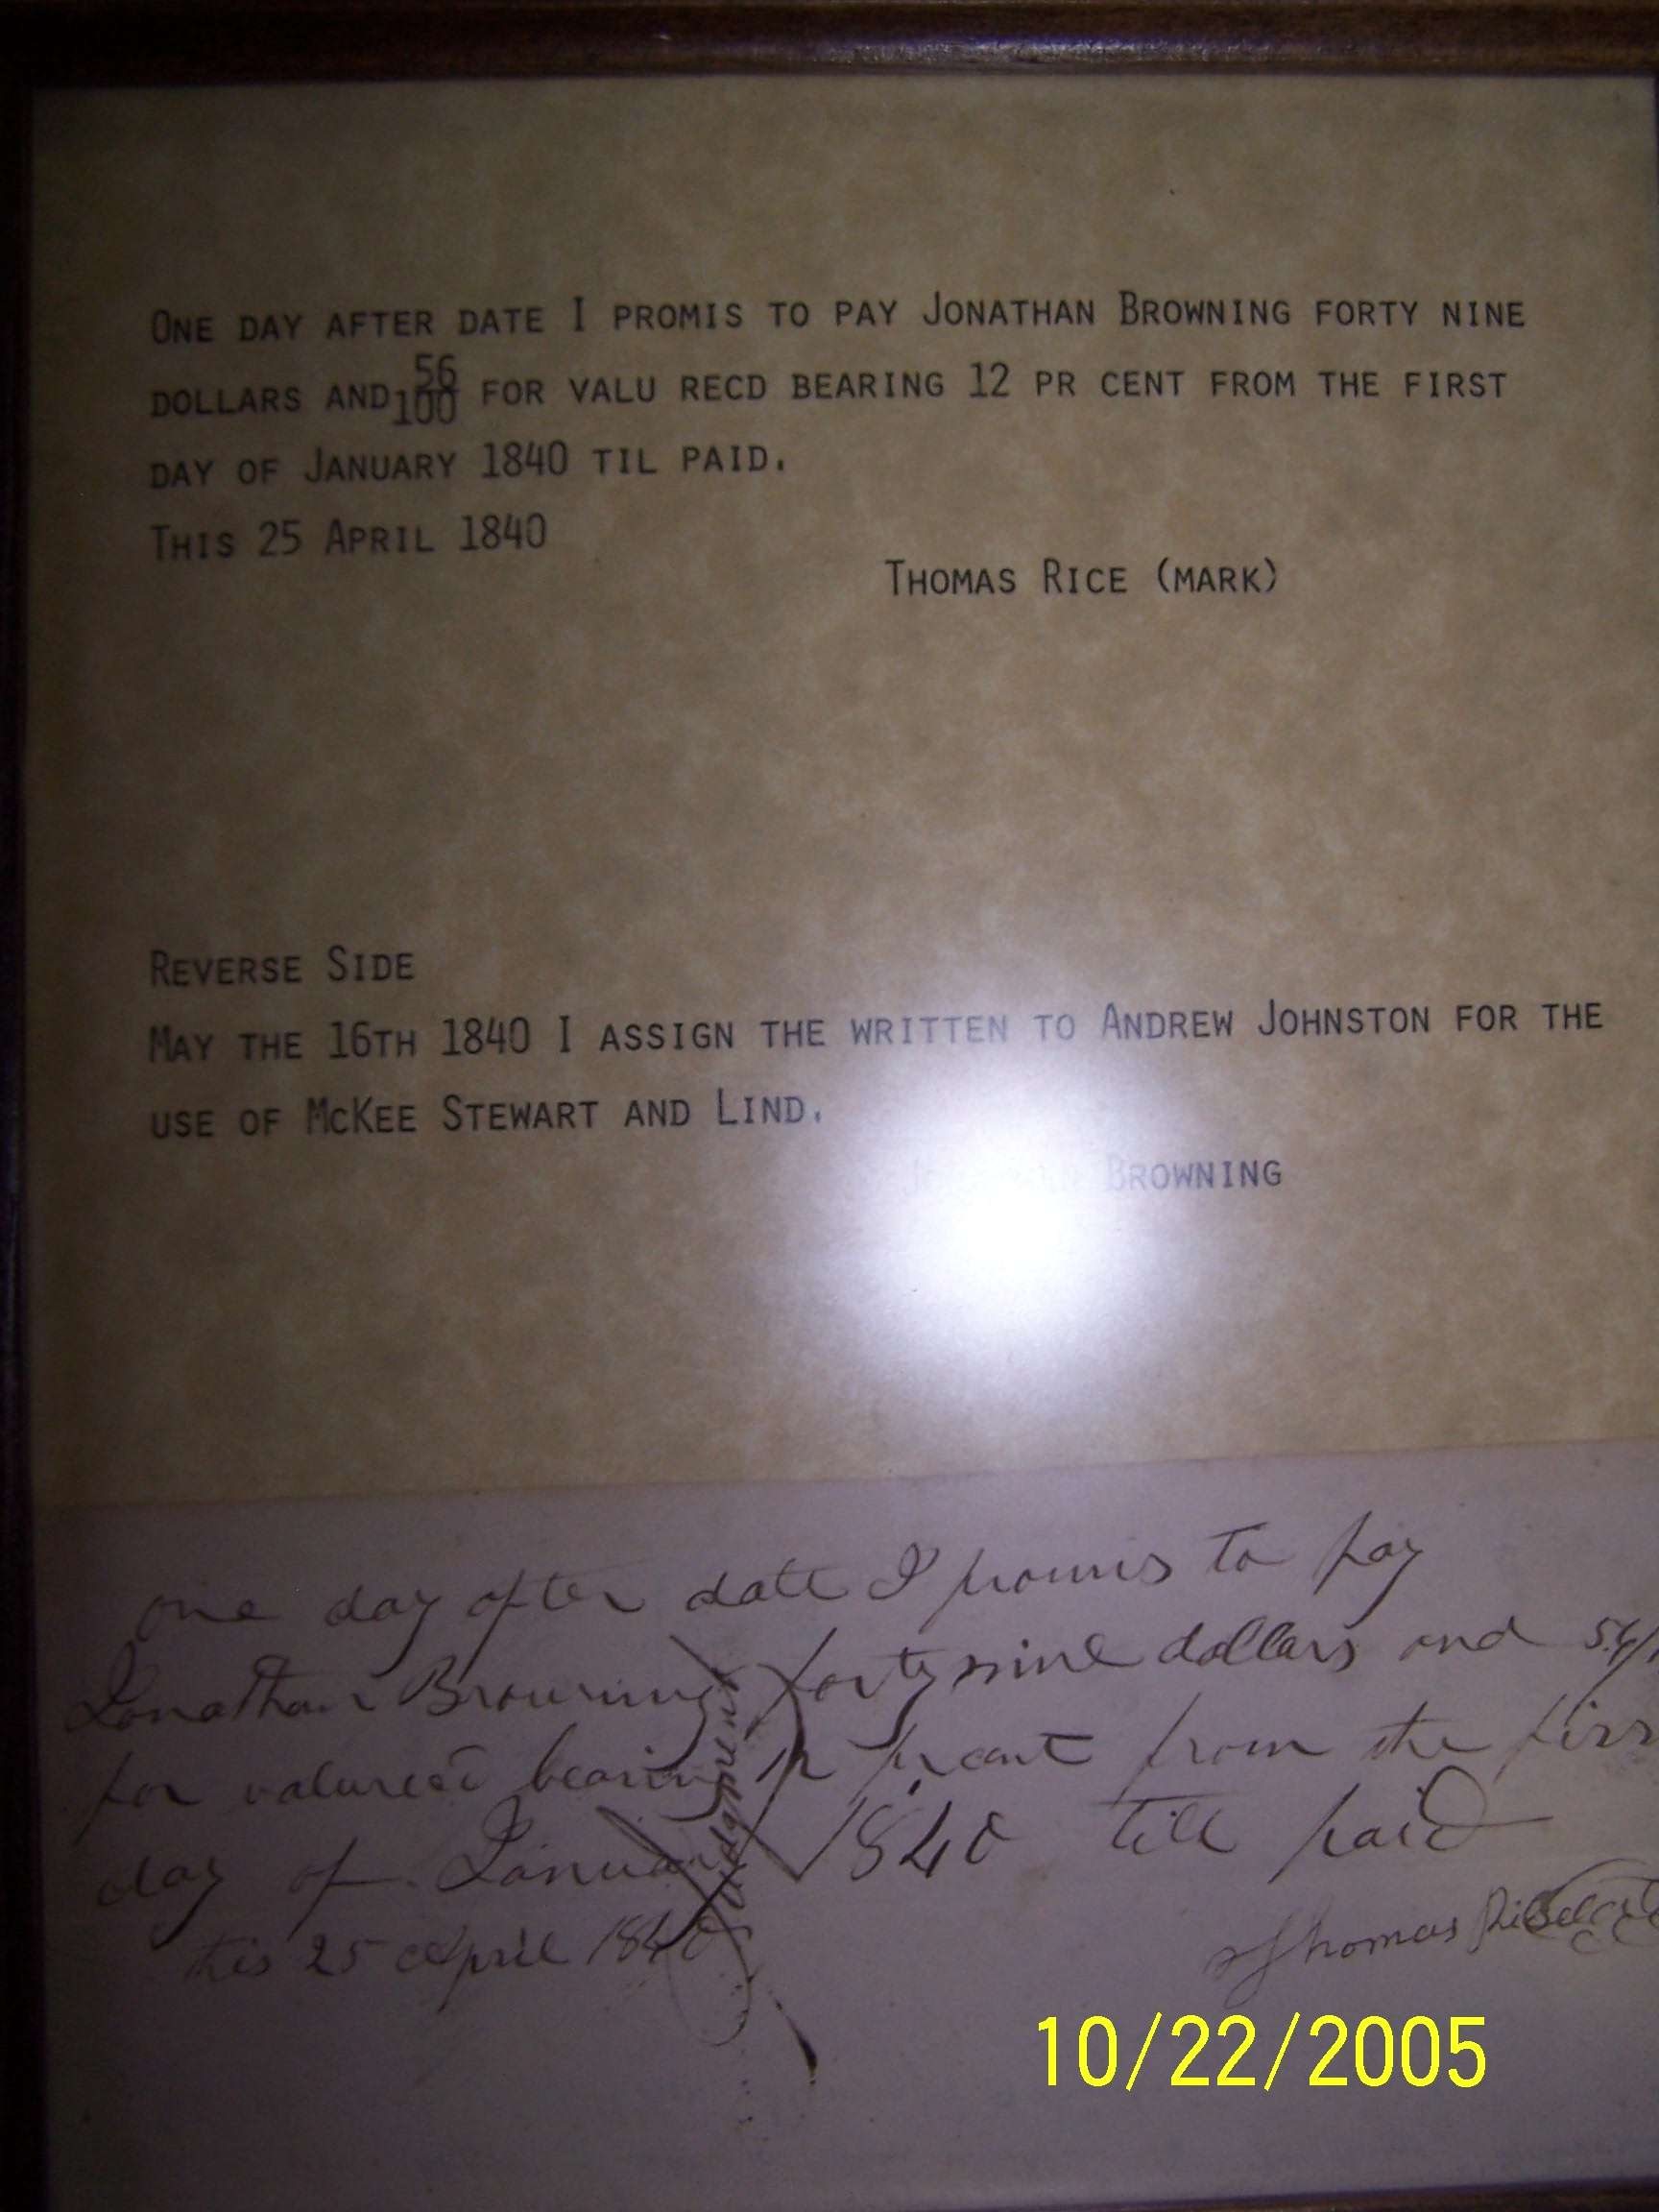 One day after date I promis to pay Jonathan Browning forty nine
dollars and 56/100 for valu recd bearing 12 pr cent from the first
day of January 1840 til paid.
This 25 April 1840
Thomas Rice (mark)
Reverse Side
May the 16th 1840 I assign the written to Andrew Johnston for the
use of McKee Stewart and Lind.
Jonathan Browning
one day after date I promis to pay
Jonathan Browning forty nine dollars and
for valu recd bearing 12 pr cent from the
day of January 1840 till paid
this 25 April 1840
Thomas
Judgment
10/22/2005